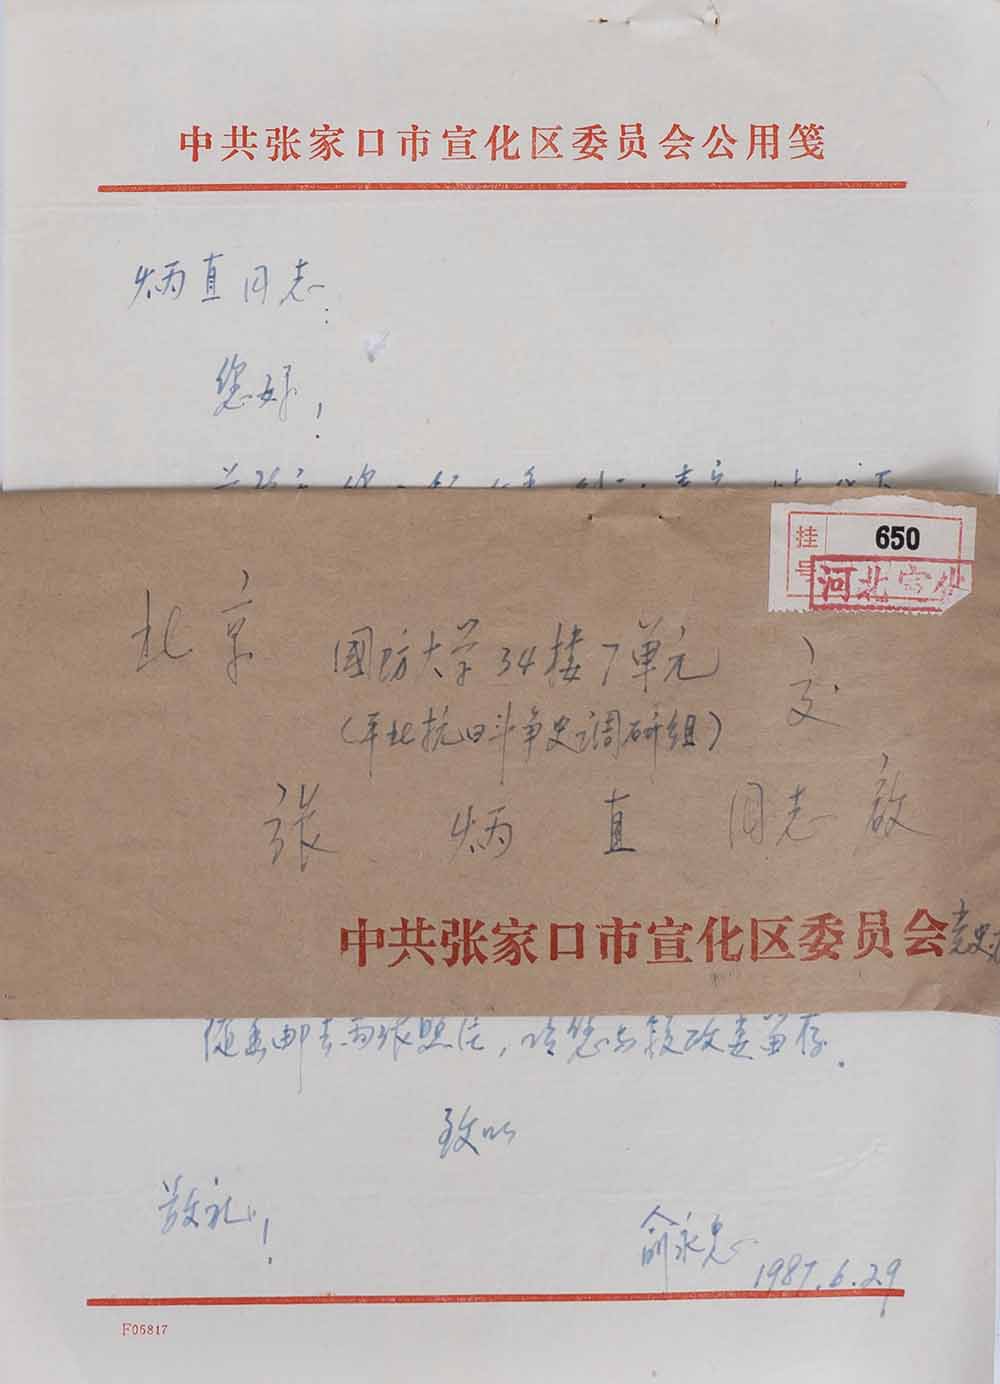 中共张家口市宣化区委员会公用笺
炳直同志:
您好!
挂号
650
河北宣化
北京
国防大学34楼7单元
(平北抗日斗争史调研组)
交
张炳直同志啟
中共张家口市宣化区委员会党史
随函邮去两张照片,请您与颖政委留存。
致以
敬礼!
俞永忠
1987.6.29
F05817